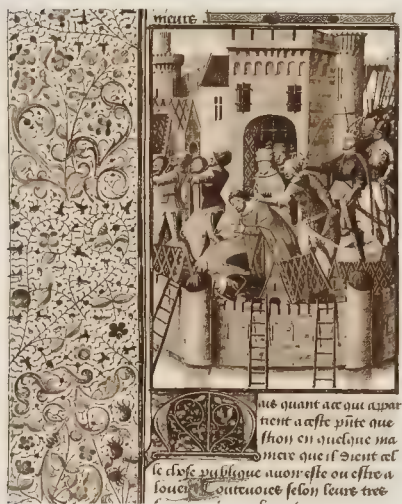 meurs
ais quant ace qui appar
tient a ceste pñte que
stion en quelque ma
niere que il dient cel
le chose publique auoir este ou estre a
louer selon leurs tres